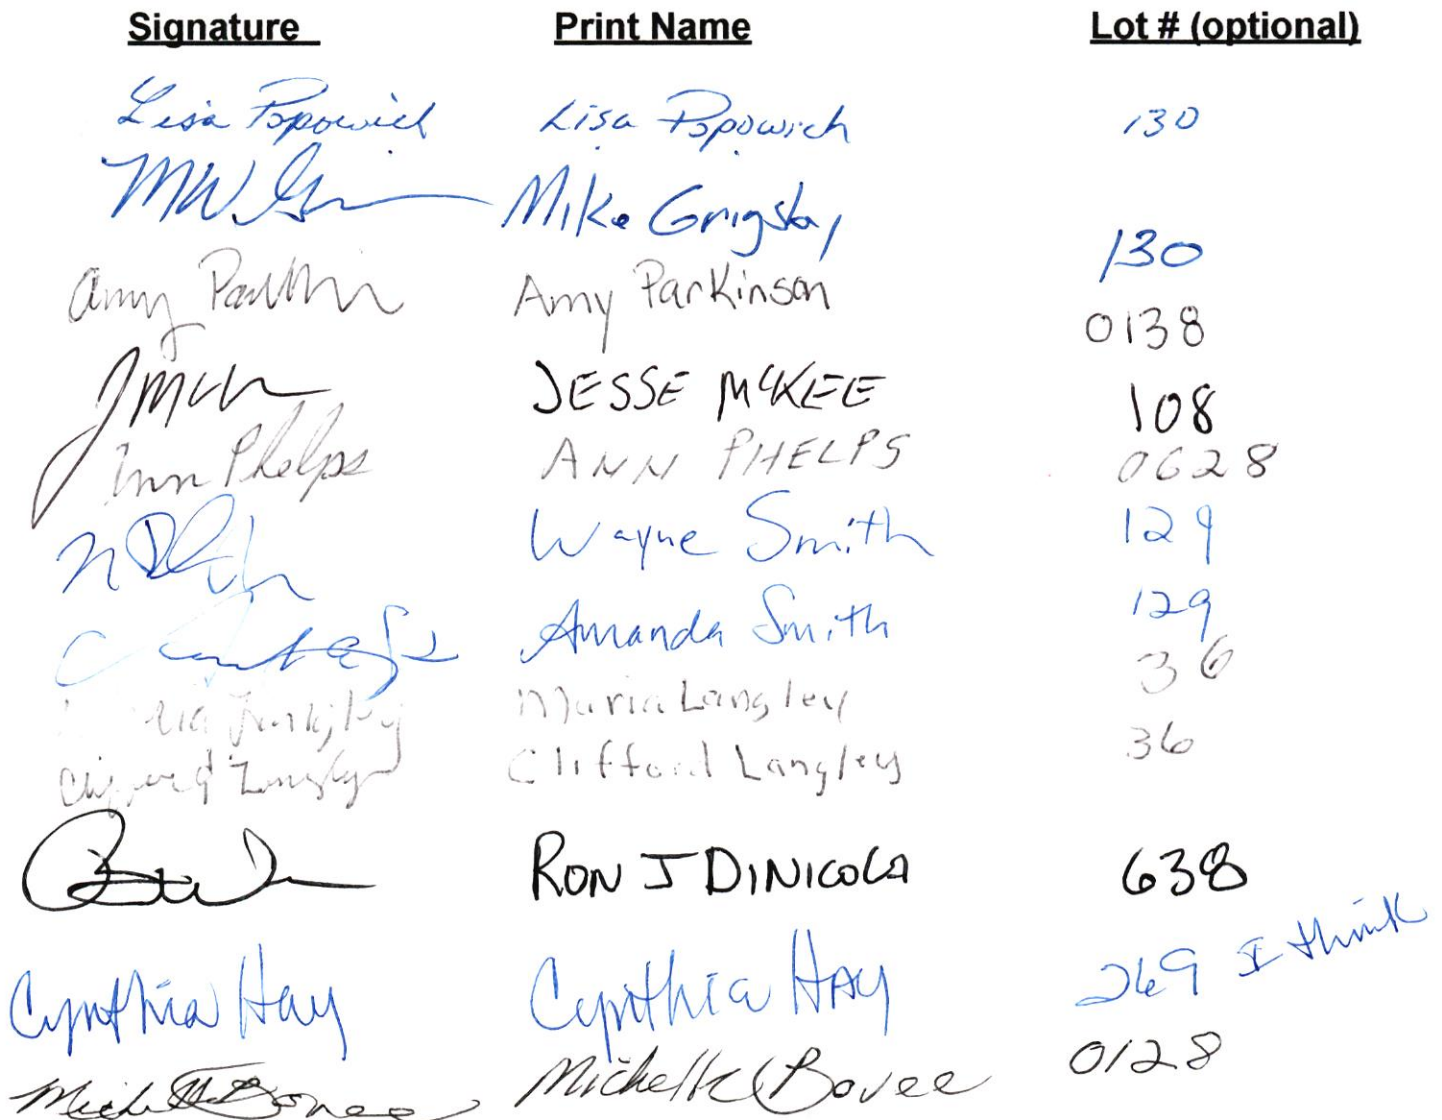 Signature Print Name Lot # (optional)
Lisa Popowich Lisa Popowich 130
Mike Grigsby 130
Amy Amy Parkinson 0138
JESSE McKEE 108
Ann Phelps ANN PHELPS 0628
Wayne Smith 129
Amanda Smith 129
Langley Maria Langley 36
Langley Clifford Langley 36
RON J DINICOLA 638
Cynthia Hay Cynthia HAY 269 I think
Michelle Bovee Michelle Bovee 0128